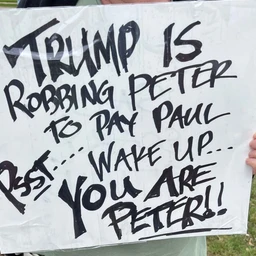 TRUMP IS
ROBBING PETER
TO PAY PAUL
PSST.... WAKE UP...
YOU ARE
PETER!!